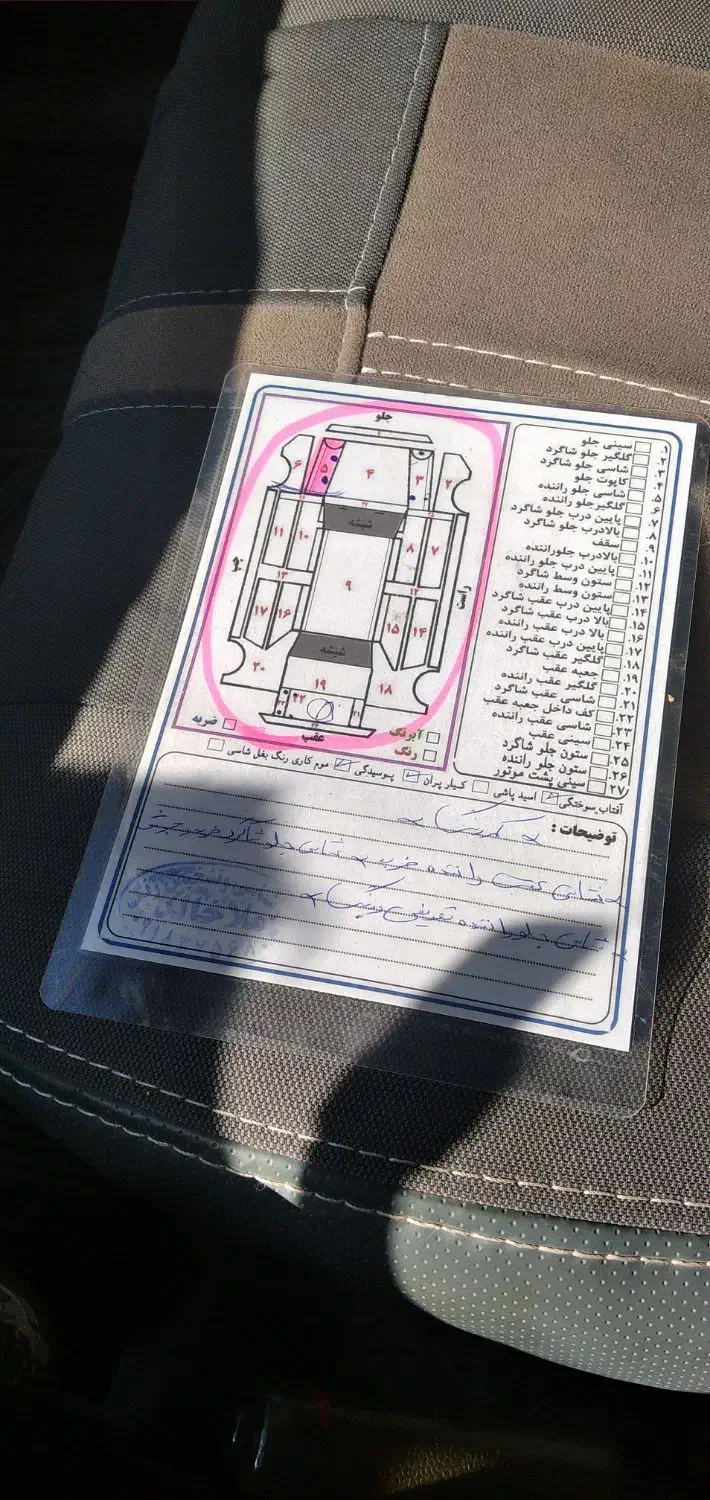 جلو
۶
۵
۴
۳
۲
شیشه
۱۱
۱۰
۸
۷
۱۳
۱۲
۹
راست
۱۷
۱۶
۱۵
۱۴
شیشه
۲۰
۱۹
۱۸
۲۲
عقب
آبرنگ
رنگ
ضربه
۱. سینی جلو
۲. گلگیر جلو شاگرد
۳. شاسی جلو شاگرد
۴. کاپوت جلو
۵. شاسی جلو راننده
۶. گلگیر جلو راننده
۷. پایین درب جلو شاگرد
۸. بالا درب جلو شاگرد
۹. سقف
۱۰. بالا درب جلو راننده
۱۱. پایین درب جلو راننده
۱۲. ستون وسط شاگرد
۱۳. ستون وسط راننده
۱۴. پایین درب عقب شاگرد
۱۵. بالا درب عقب شاگرد
۱۶. بالا درب عقب راننده
۱۷. پایین درب عقب راننده
۱۸. گلگیر عقب شاگرد
۱۹. جعبه عقب
۲۰. گلگیر عقب راننده
۲۱. شاسی عقب شاگرد
۲۲. کف داخل جعبه عقب
۲۳. شاسی عقب راننده
۲۴. سینی عقب
۲۵. ستون جلو شاگرد
۲۶. ستون جلو راننده
۲۷. سینی پشت موتور
آفتاب سوختگی اسید پاشی کیلر پران پوسیدگی موم کاری رنگ بغل شاسی
توضیحات :
شاسی عقب راننده ضربه شاسی جلو شاگرد
شاسی جلو راننده تعویض رنگ